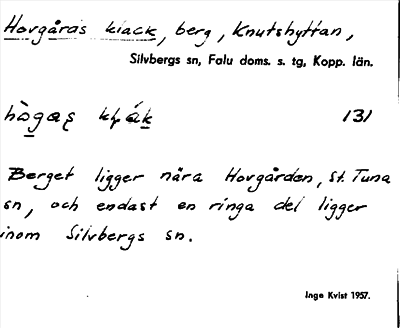 Hovgårds klack, berg, Knutshyttan,
Silvbergs sn, Falu doms. s. tg, Kopp. län.
131
Berget ligger nära Hovgården, St. Tuna
sn, och endast en ringa del ligger
inom Silvbergs sn.
Inge Kvist 1957.